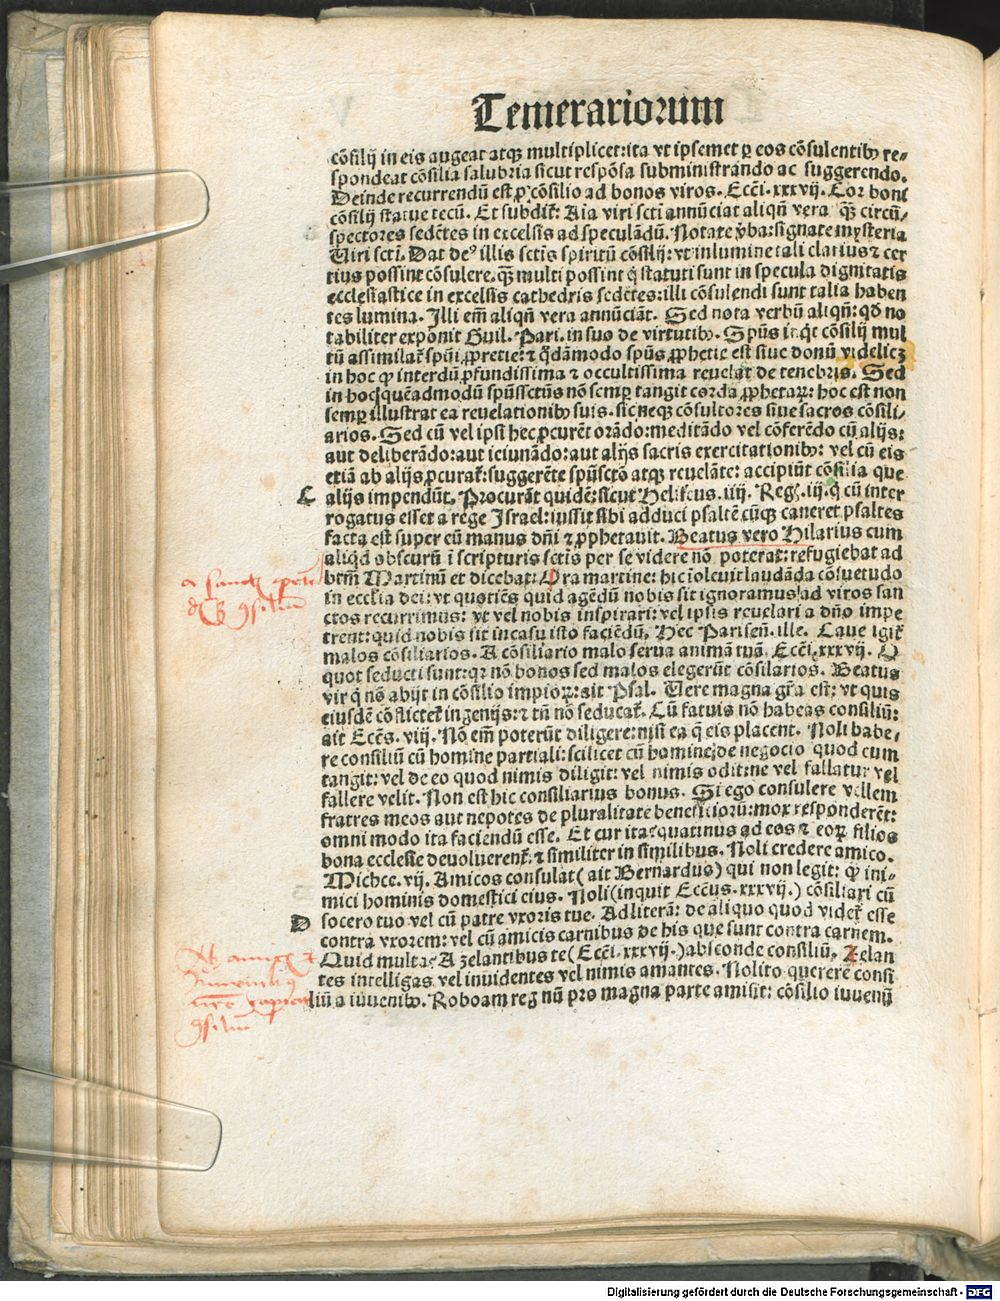 Temerariorum
cõsilij in eis augeat atqꝫ multiplicet: ita vt ipsemet ꝑ eos cõsulentibꝰ re⸗
spondeat cõsilia salubria sicut respõsa subministrando ac suggerendo.
Deinde recurrendũ est ꝓ cõsilio ad bonos viros. Ecci. xxxvij. Cor boni
cõsilij statue tecũ. Et subdit: Aia viri scti annũciat aliqñ vera qꝫ circũ⸗
spectores sedẽtes in excelsis ad speculãdũ. Notate ṽba: signate mysteria
Uiri scti. Dat deꝰ illis sctis spiritũ cõsilij: vt in lumine tali clariꝰ ⁊ cer
tius possint cõsulere. qꝫ multi possint q̇ statuti sunt in specula dignitatis
ecclesiastice in excelsis cathedris sedẽtes: illi cõsulendi sunt talia haben
tes lumina. Illi em̃ aliqñ vera annũciãt. Sed nota verbũ aliqñ: qd̓ no
tabiliter exponit Guil. Pari. in suo de virtutibꝰ. Spũs inq̇t cõsilij mul
tũ assimilat̃ spũi ꝓpretie: ⁊ q̃dãmodo spũs ꝓphetie est siue donũ videlicꝫ
in hoc ꝙ interdũ ꝓfundissima ⁊ occultissima reuelat de tenebris. Sed
in hoc quẽadmodũ spũssctũs nõ semꝑ tangit corda ꝓphetaꝝ: hoc est non
semꝑ illustrat ea reuelationibꝰ suis. sic neqꝫ cõsultores siue sacros cõsili⸗
arios. Sed cũ vel ipsi hec ꝓcurẽt orãdo: meditãdo vel cõferẽdo cũ alijs:
aut deliberãdo: aut ieiunãdo: aut alijs sacris exercitationibꝰ: vel cũ eis
etiã ab alijs ꝓcurat̃: suggerẽte spũsctõ atqꝫ reuelãte: accipiũt cõsilia que
C alijs impendũt. Procurãt quidẽ: sicut Heliseus. iiij. Reg. iij. q̇ cũ inter
rogatus esset a rege Israel: iussit sibi adduci psaltẽ cũqꝫ caneret psaltes
facta est super eũ manus dñi ⁊ ꝓphetauit. Beatus vero Hilarius cum
aliqd̓ obscurũ ĩ scripturis sctis per se videre nõ poterat: refugiebat ad
btm̃ Martinũ et dicebat: Ora martine: hic ioleuit laudãda cõsuetudo
in ecclia dei: vt quotiẽs quid agẽdũ nobis sit ignoramus ad viros san
ctos recurrimus: vt vel nobis inspirari: vel ipsis reuelari a dño impe
trent: quid nobis sit in casu isto faciẽdũ. Hec Parisieñ. ille. Caue igit̃
malos cõsiliarios. A cõsiliario malo serua animã tuã. Ecci. xxxvij. O
quot seducti sunt: qꝛ nõ bonos sed malos elegerũt cõsilarios. Beatus
vir q̇ nõ abijt in cõsilio impioꝝ: ait Psal. Uere magna gr̃a est: vt quis
eiusdẽ cõflictet̃ ingenijs: ⁊ tñ nõ seducat̃. Cũ fatuis nõ habeas consiliũ:
ait Eccs. viij. Nõ em̃ poterũt diligere: nisi ea q̃ eis placent. Noli habe⸗
re consiliũ cũ homine partiali: scilicet cũ homine: de negocio quod cum
tangit: vel de eo quod nimis diligit: vel nimis odit: ne vel fallatur vel
fallere velit. Non est hic consiliarius bonus. Si ego consulere vellem
fratres meos aut nepotes de pluralitate beneficiorũ: mox responderẽt:
omni modo ita faciendũ esse. Et cur ita? quatinus ad eos ⁊ eoꝝ filios
bona ecclesie deuoluerent̃: ⁊ similiter in similibus. Noli credere amico.
Michee. vij. Amicos consulat (ait Bernardus) qui non legit: ꝙ ini⸗
mici hominis domestici eius. Noli (inquit Eccus. xxxvij.) cõsiliari cũ
D socero tuo vel cũ patre vxoris tue. Ad literã: de aliquo quod videt̃ esse
contra vxorem: vel cũ amicis carnibus de his que sunt contra carnem.
Quid multa? A zelantibus te (Ecci. xxxvij.) absconde consiliũ. Zelan
tes intelligas vel inuidentes vel nimis amantes. Nolito querere consi
liũ a iuuenibꝰ. Roboam reg nũ pro magna parte amisit: cõsilio iuuenũ
Digitalisierung gefördert durch die Deutsche Forschungsgemeinschaft - DFG